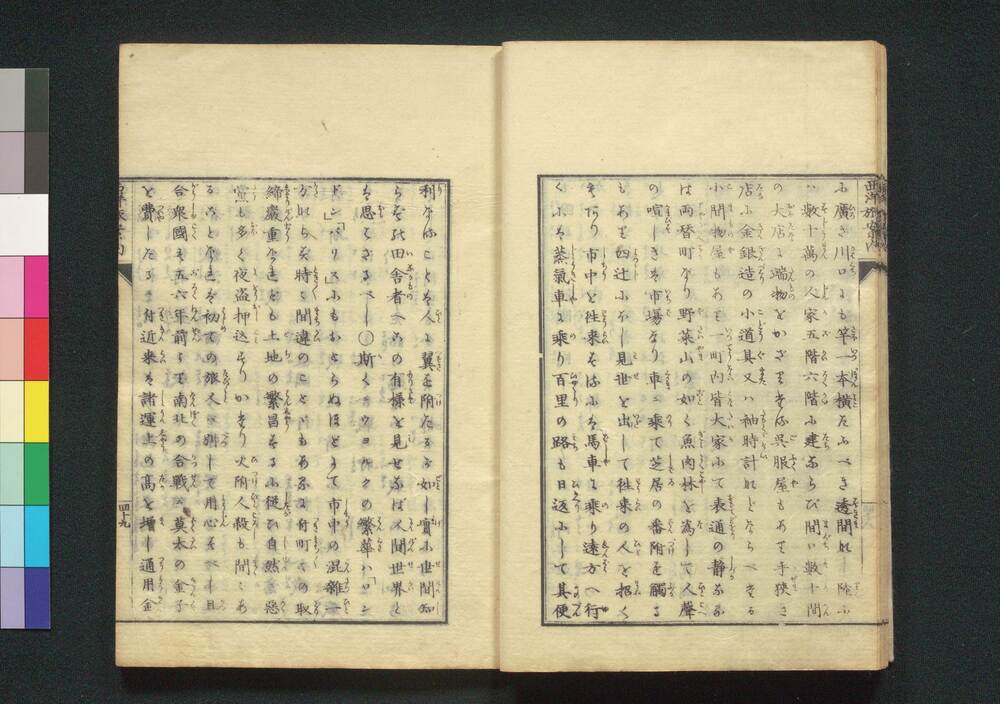 に廣き川口にも竿一本横たふべき透間なし陸には
ハ数十萬の人家五階六階に建ならび間口数十間
の大店に端物をかざり
呉服屋もあり手狭き
店に金銀造の小道具又ハ袖時計などならべ
小間物屋もあり一町内皆大家にて表通の静なる
は両替町なり野菜山の如く魚肉林を為して人聲
の喧しきは市場なり車に乗て芝居の番附を觸る
もあり四辻に
見世を出して往来の人を招く
もあり市中を往来するにも馬車に乗り遠方へ行
くにも蒸氣車に乗り百里の路も日返にして其便
利なることは人に翼を附たるが如し實に世間知
らずの田舎者へこの有様を見せなば人間世界と
は思
斯くニウヨルクの繁華ハ「ロン
ドン」「パリス」にもおとらぬほどにて市中の混雑一
方ならず時に間違のこともあるに付町々の取
締嚴重なれども土地の繁昌するに從ひ自然惡
黨も多く夜盗押込すりかすり火附人殺も間々あ
ることなれば初ての旅人ハ別して用心すべし且
合衆國も五六年前にて南北の合戰に莫太の金子
を費したるに付近来は諸運上の高を増し通用金
四十九